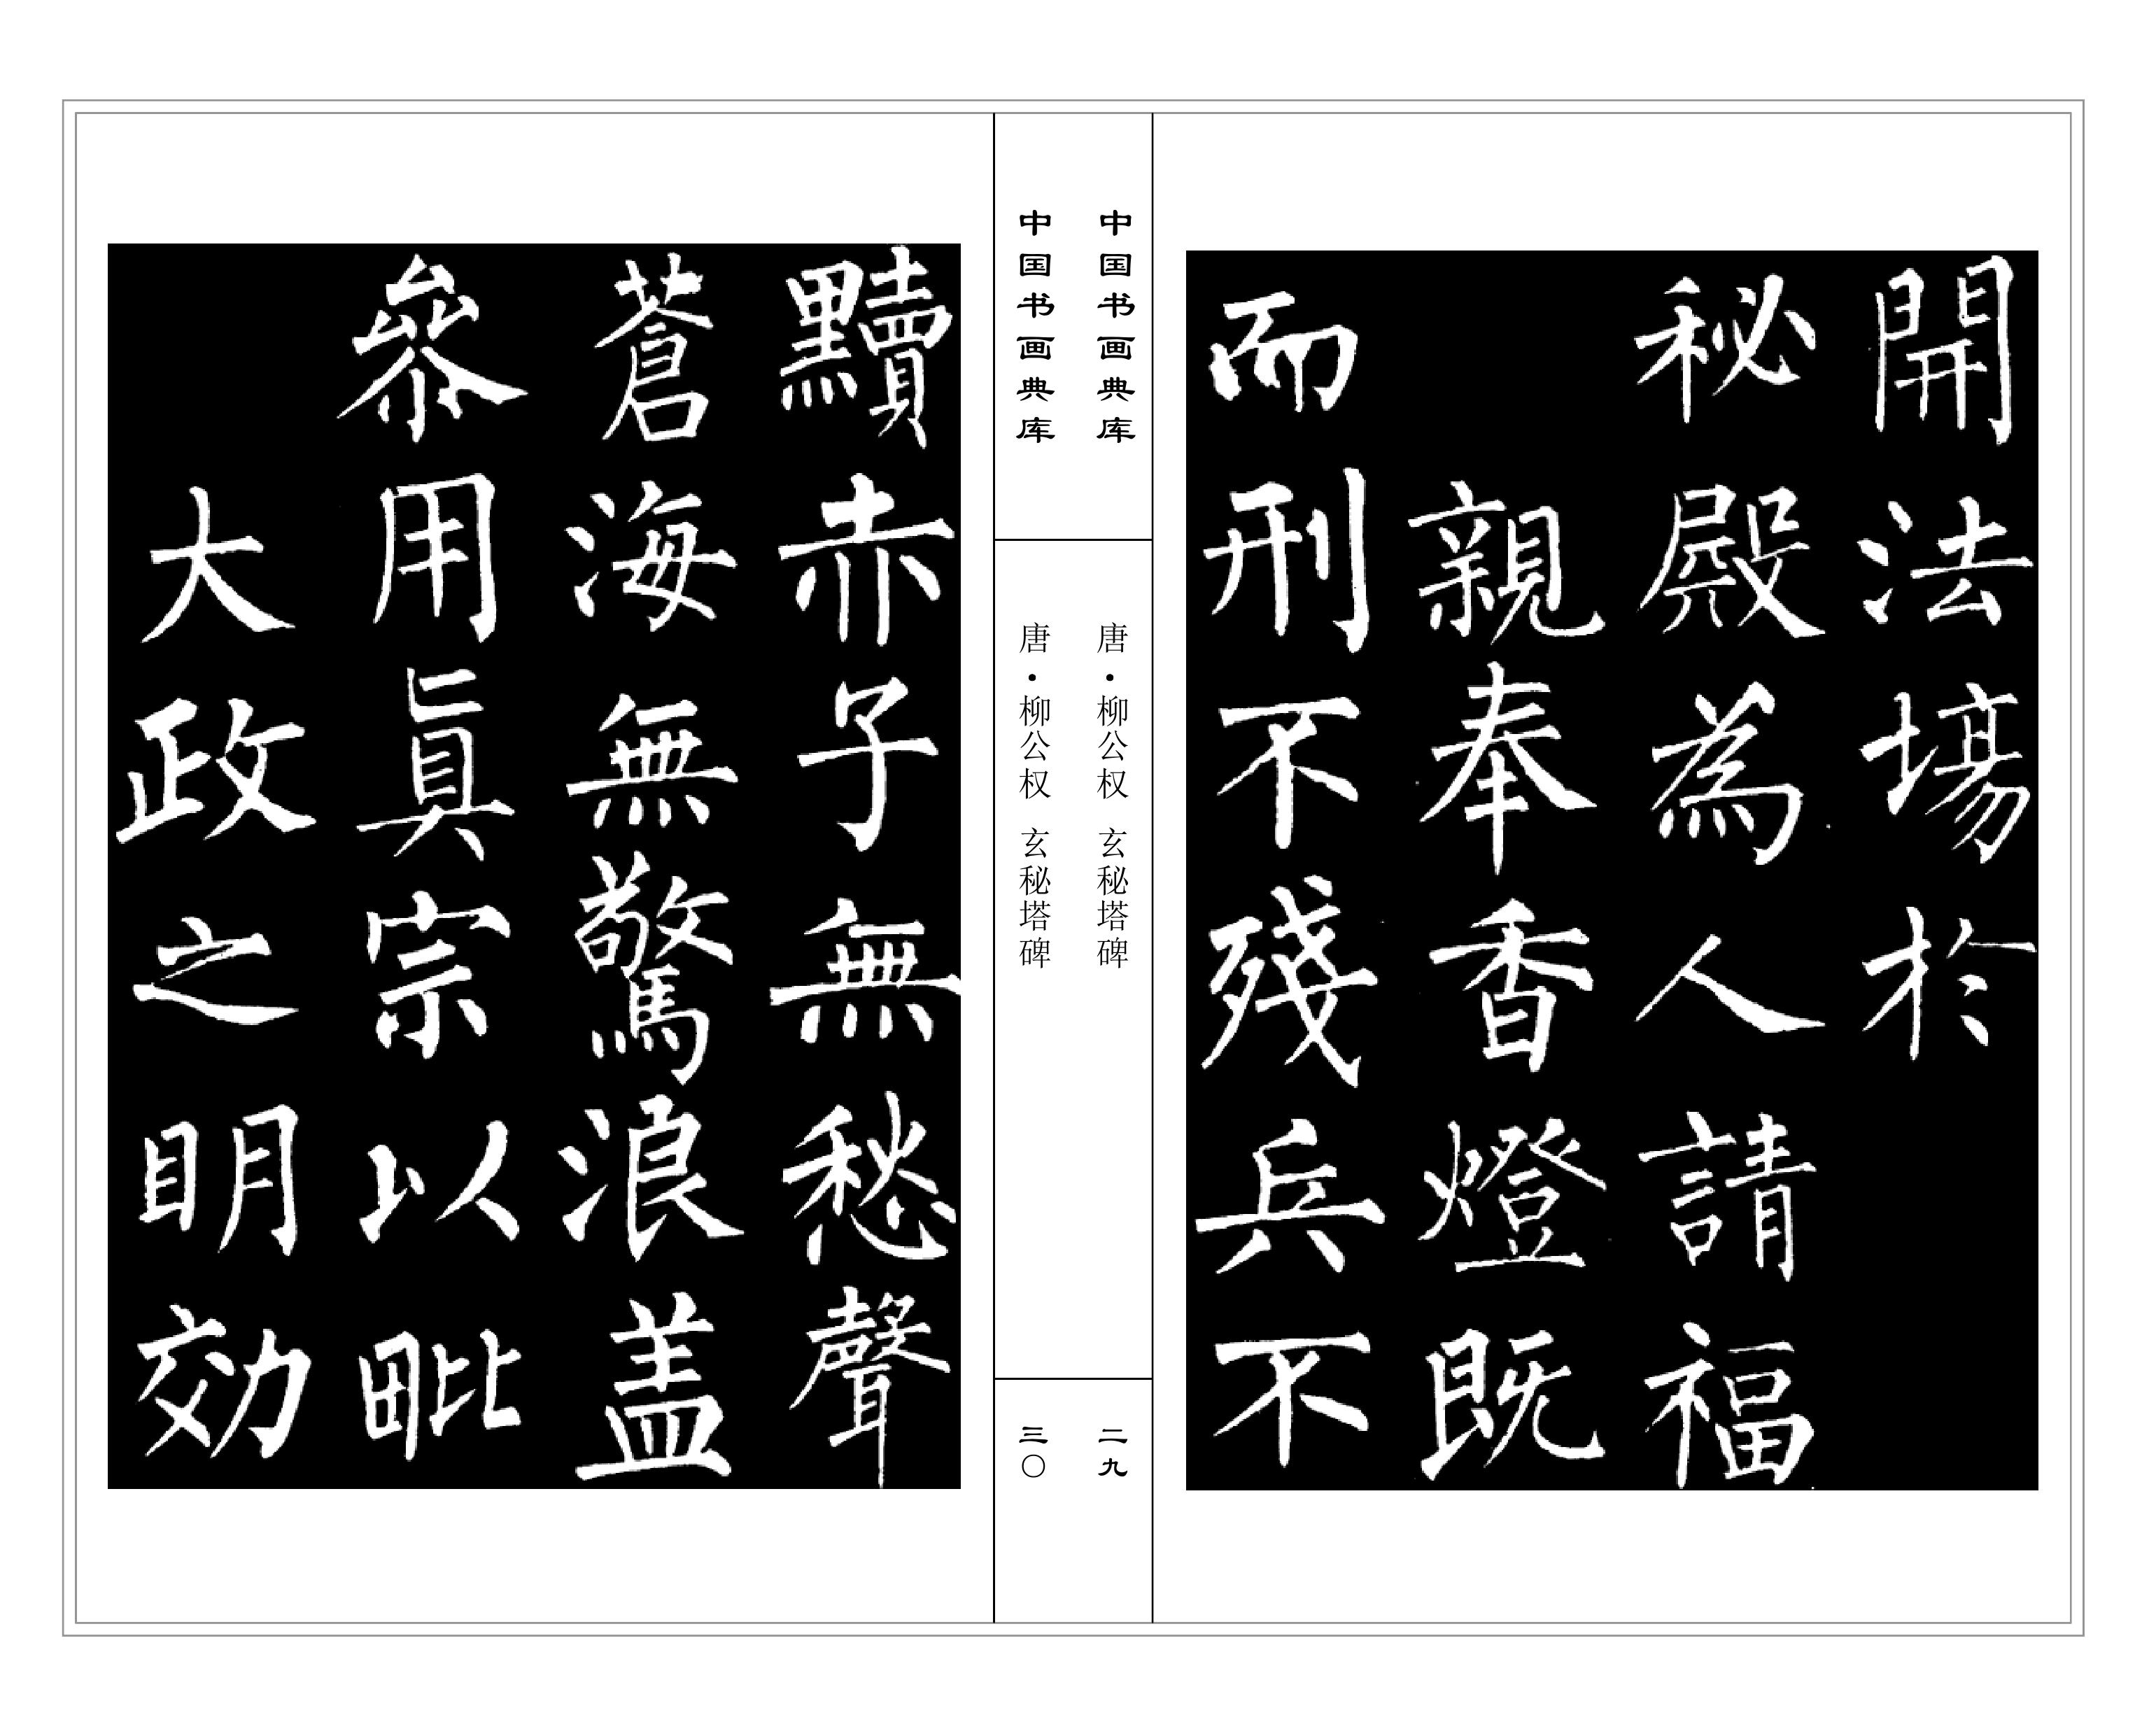 開法場於
秘殿為人請福
親奉香燈既
而刑不殘兵不
中国书画典库
唐·柳公权 玄秘塔碑
二九
中国书画典库
唐·柳公权 玄秘塔碑
三〇
黷赤子無愁聲
蒼海無驚浪盖
叅用真宗以毗
大政之明効